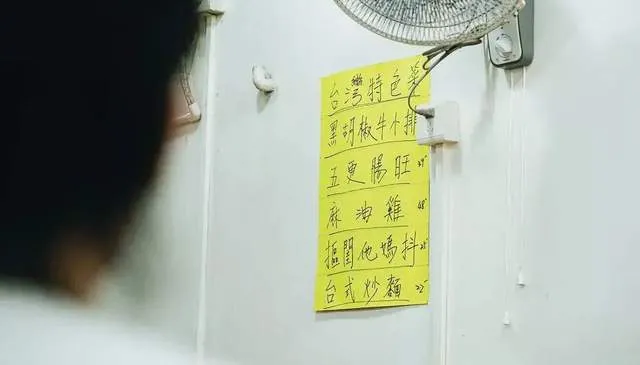 台灣特色菜
黑胡椒牛小排
五更腸旺
麻油雞 48
他媽抖
台式炒麵 22